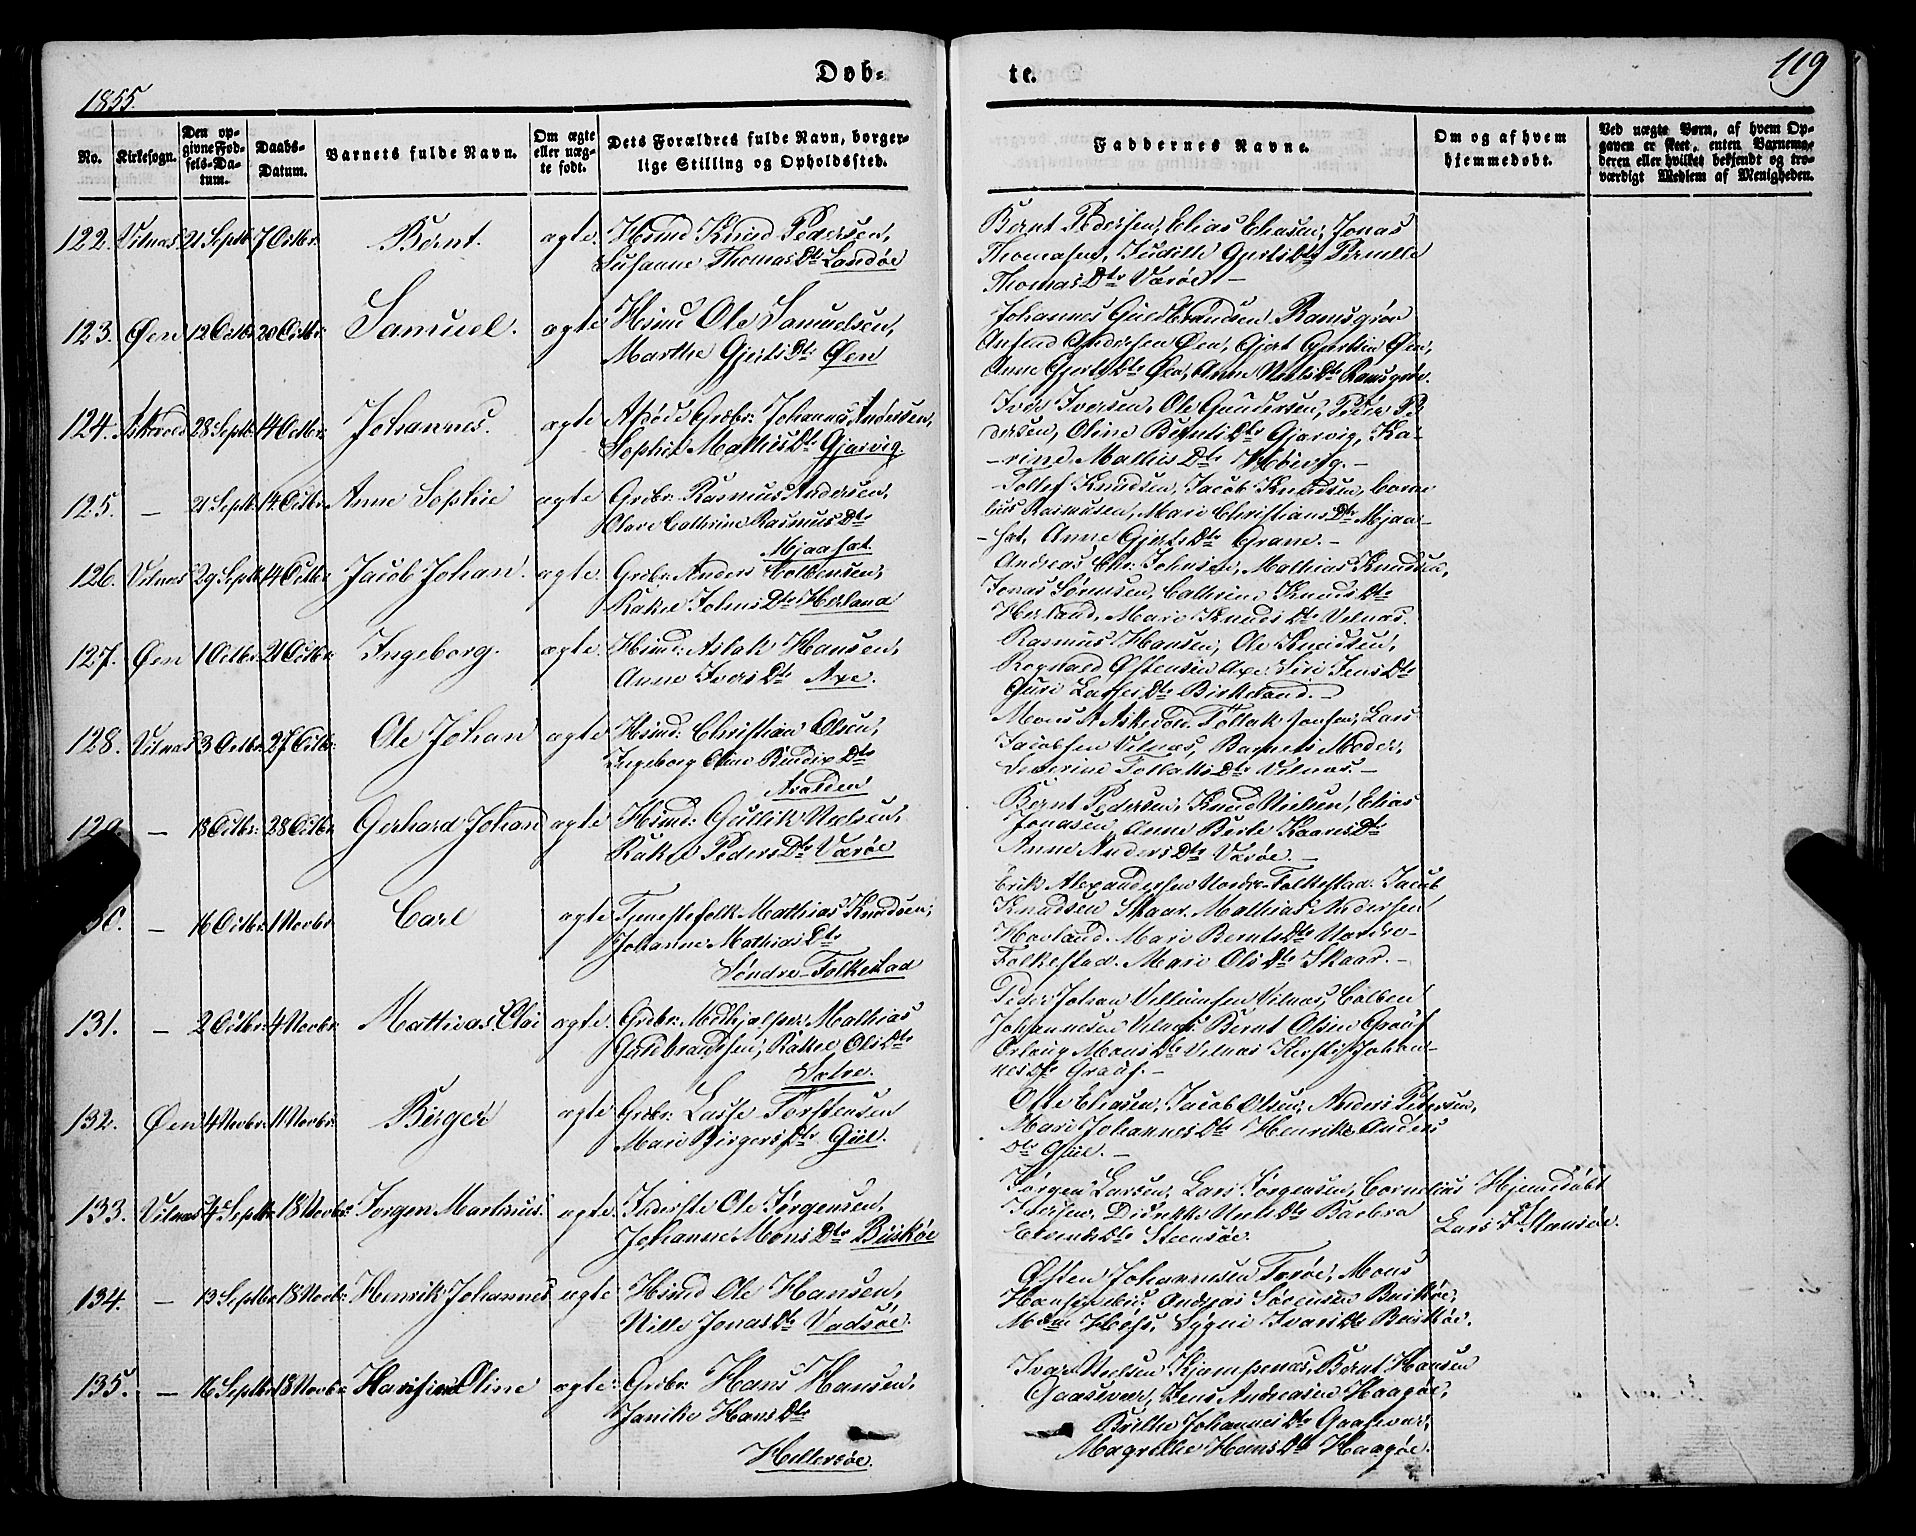 1855.
Døb-
te.
119
No.
Kirkesogn.
Den op-
givne Fød-
sels-Da-
tum.
Daabs-
Datum.
Barnets fulde Navn.
Om ægte
eller uæg-
te født.
Dets Forældres fulde Navn, borger-
lige Stilling og Opholdssted.
Faddernes Navne.
Om og af hvem
hjemmedøbt.
Ved uægte Børn, af hvem Op-
gaven er skeet, enten Barnemo-
deren eller hvilket bekjendt og tro-
værdigt Medlem af Menigheden.
122. Vilnæs 21 Septb. 7 Octbr. Bernt. ægte. Hsmd Knud Pedersen,
Susanne Thomas Dtr Landøe
Bernt Pedersen, Elias Eliasen, Jonas
Thomasen, Judithe Gjerts Dtr Pernille
Thomas Dtr Værøe. -
123. Øen 12 Octbr. 20 Octbr. Samuel. ægte Hsmd Ole Samuelsen,
Marthe Gjerts Dtr Øen
Johannes Gudbrandsen Ramsgrøn
Andersen Øen, Gjert Gjertsen Øen,
Anne Gjerts Dtr Øen, Anne Niels Dtr Ramsgrøn.
124. Askevold 28 Septb. 14 Octbr. Johannes. ægte Grbr. Johannes Andersen,
Sophie Mathies Dtr Gjervig.
Iver Iversen, Ole Gundersen, Peder Pe
dersen, Oline Bernts Dtr Gjervig, Ka-
-rine Mathis Dtr -
125. - 21 Septb. 14 Octbr. Anne Sophie ægte Grbr. Rasmus Andersen,
Cathrine Rasmus Dtr
Mjaaset.
Tollef Knudsen, Jacob Knudsen, Corne
lius Rasmusen, Mari Christians Dtr Mjaa-
-set, Anne Gjerts Dtr Grane. -
126. Vilnæs 29 Septb. 14 Octbr. Jacob Johan. ægte Grbr. Anders Colbensen,
Rakel Johns Dtr Herland
Andreas Chr. Johnsen, Mathias Knudsen,
Jonas Sørensen, Cathrine Knuds Dtr
Herland, Mari Knuds Dtr Vilnæs.
127. Øen 1 Octbr. 21 Octbr. Ingeborg. ægte. Hsmd: Aslak Hansen,
Anne Ivers Dtr Axe.
Rasmus Hansen, Ole Knudsen,
Rognald Østensen Axe. Siri Jens Dtr
Guri Lasses Dtr Birkeland. -
128. Vilnæs 3 Octbr. 27 Octbr. Ole Johan ægte. Hsmd: Christian Olsen,
Ingeborg Oline Bendix Dtr
Mons A Askevold. Tollak Jonsen, Lars
Jacobsen Vilnæs, Barnets Moder,
Severine Tollaks Dtr Vilnæs. -
129. - 18 Octbr. 28 Octbr. Gerhard Johan ægte Hsmd: Gullik Nielsen,
Rakel Peders Dtr Værøe
Bernt Pedersen, Knud Nielsen, Elias
Jonasen, Anne Berte Dtr
Anne Anders Dtr Værøe. -
130. - 16 Octbr. 1 Novbr. Carl ægte Tjenestefolk Mathias Knudsen,
Johanne Mathias Dtr
Søndre-Folkestad
Erik Alexandersen Nordre-Folkestad. Jacob
Knudsen Skaar. Mathias Andersen
Havland. Mari Bernts Dtr Nordre-
Folkestad. Mari Ols Dtr Skaar. -
131. - 2 Octbr. 4 Novbr. Mathias Elai ægte. Grbr. Medhjelper Mathias
Guldbrandsen, Rakel Ols Dtr
Peder Johan Villumsen Vilnæs, Colben
Johannesen Vilnæs. Bernt Olsen
Mons Dtr Vilnæs Johan-
nes Dtr -
132. Øen 4 Novbr. 11 Novbr. Birger ægte Grbr. Lasse Torstensen
Mari Birgers Dtr Giil.
Eliasen, Jacob Olsen, Anders Petersen,
Mari Johannes Dtr Henrike Anders
Dtr Giil. -
133. Vilnæs 4 Septb. 18 Novbr. Jørgen Martinus. ægte. Inderste Ole Jørgensen,
Johanne Mons Dtr Buskøe
Jørgen Larsen, Lars Jørgensen, Cornelius
Iversen. Didrikke Niels Dtr Barbra
Dtr Steensøe.
Hjemdøbt
Lars Steensøe.
134. - 13 Septbr. 18 Novbr. Henrik Johannes ægte Hsmd Ole Hansen,
Nille Jonas Dtr Vadsøe.
Østen Johannesen Mons
Hansen ibid: Andreas Sørensen Buskøe,
Mdm Høfs, Ivers Dtr Buskøe.
135. - 16 Septbr. 18 Novbr. Oline ægte. Grbr. Hans Hansen,
Janike Hans Dtr
Hellersøe.
Iver Nielsen Bernt Hansen
Gaasvær, Jens Andreasen Haagøe,
Brithe Johannes Dtr Gaasvær,
Magrethe Hans Dtr Haagøe.